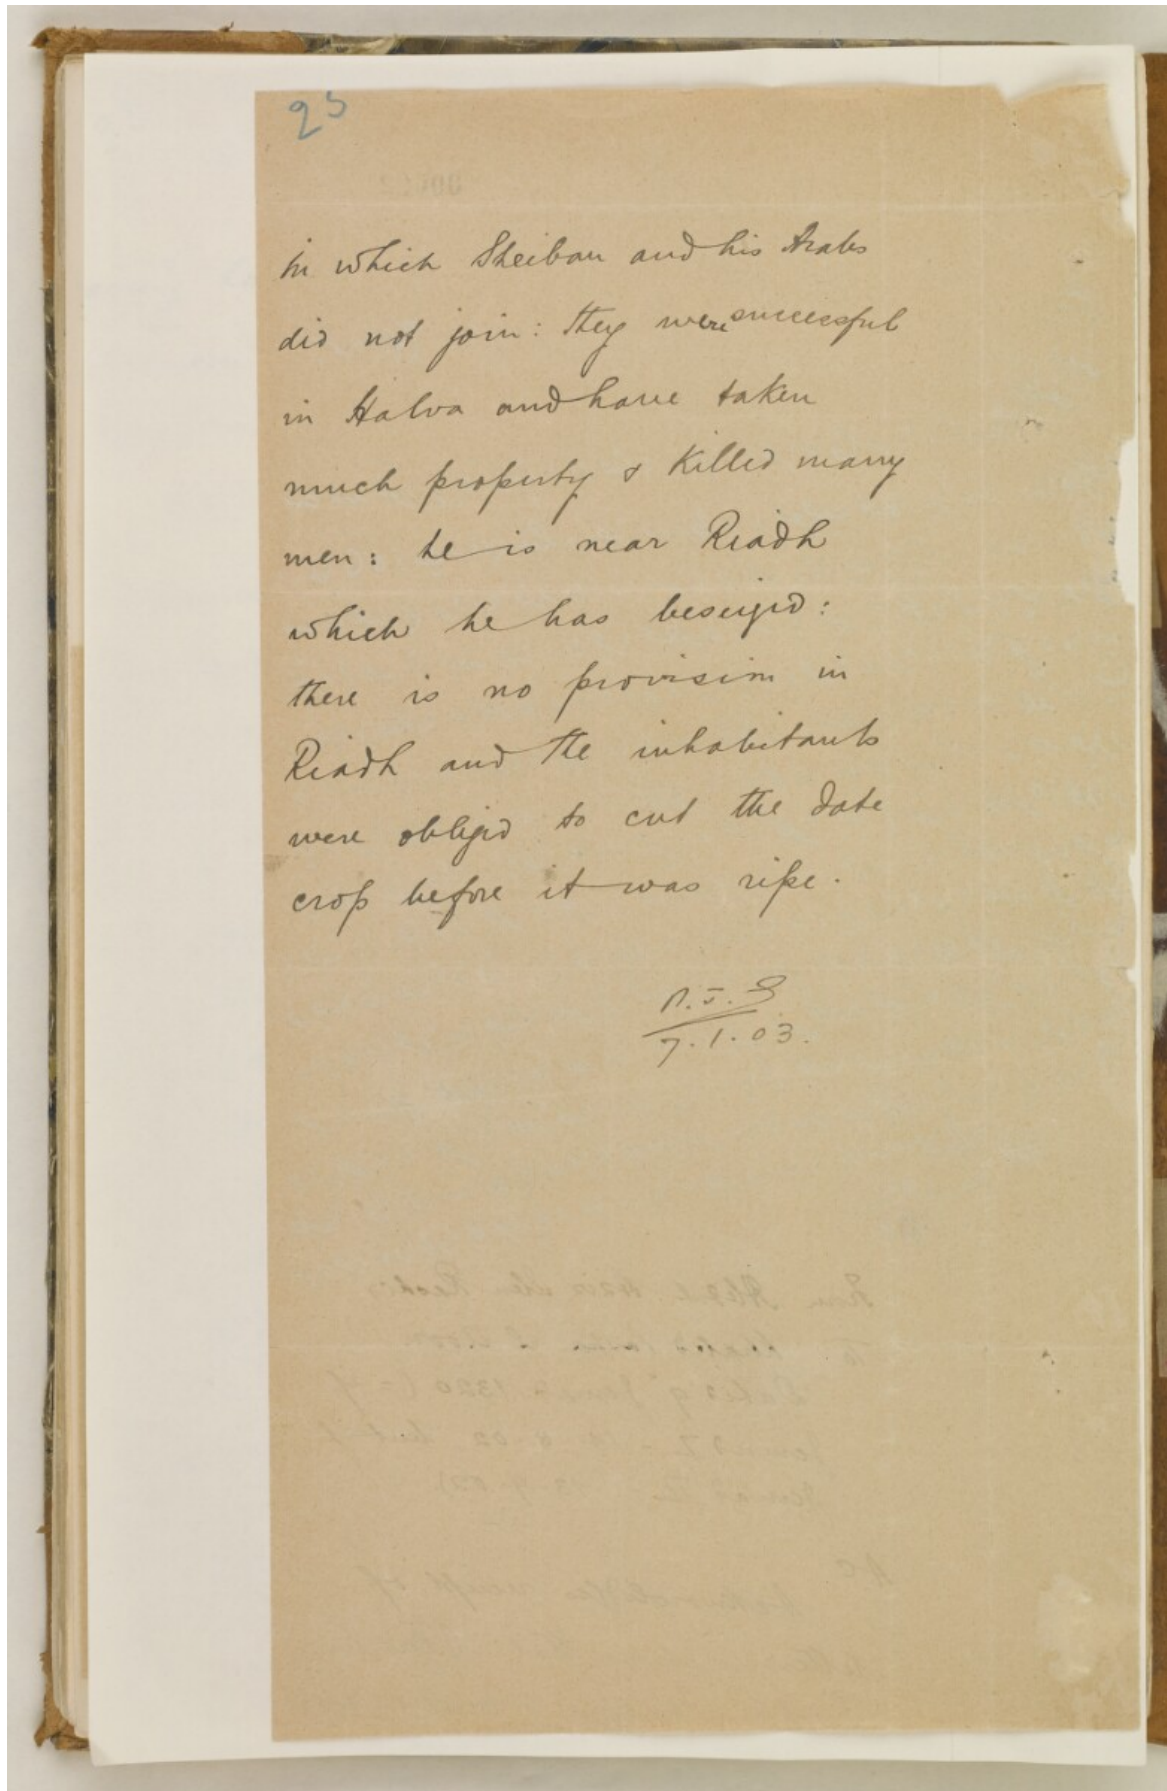 25
in which Sheiban and his Arabs
did not join: they were successful
in Halva and have taken
much property & killed many
men: he is near Riadh
which he has beseiged:
there is no provision in
Riadh and the inhabitants
were obliged to cut the date
crop before it was ripe.
7.1.03.